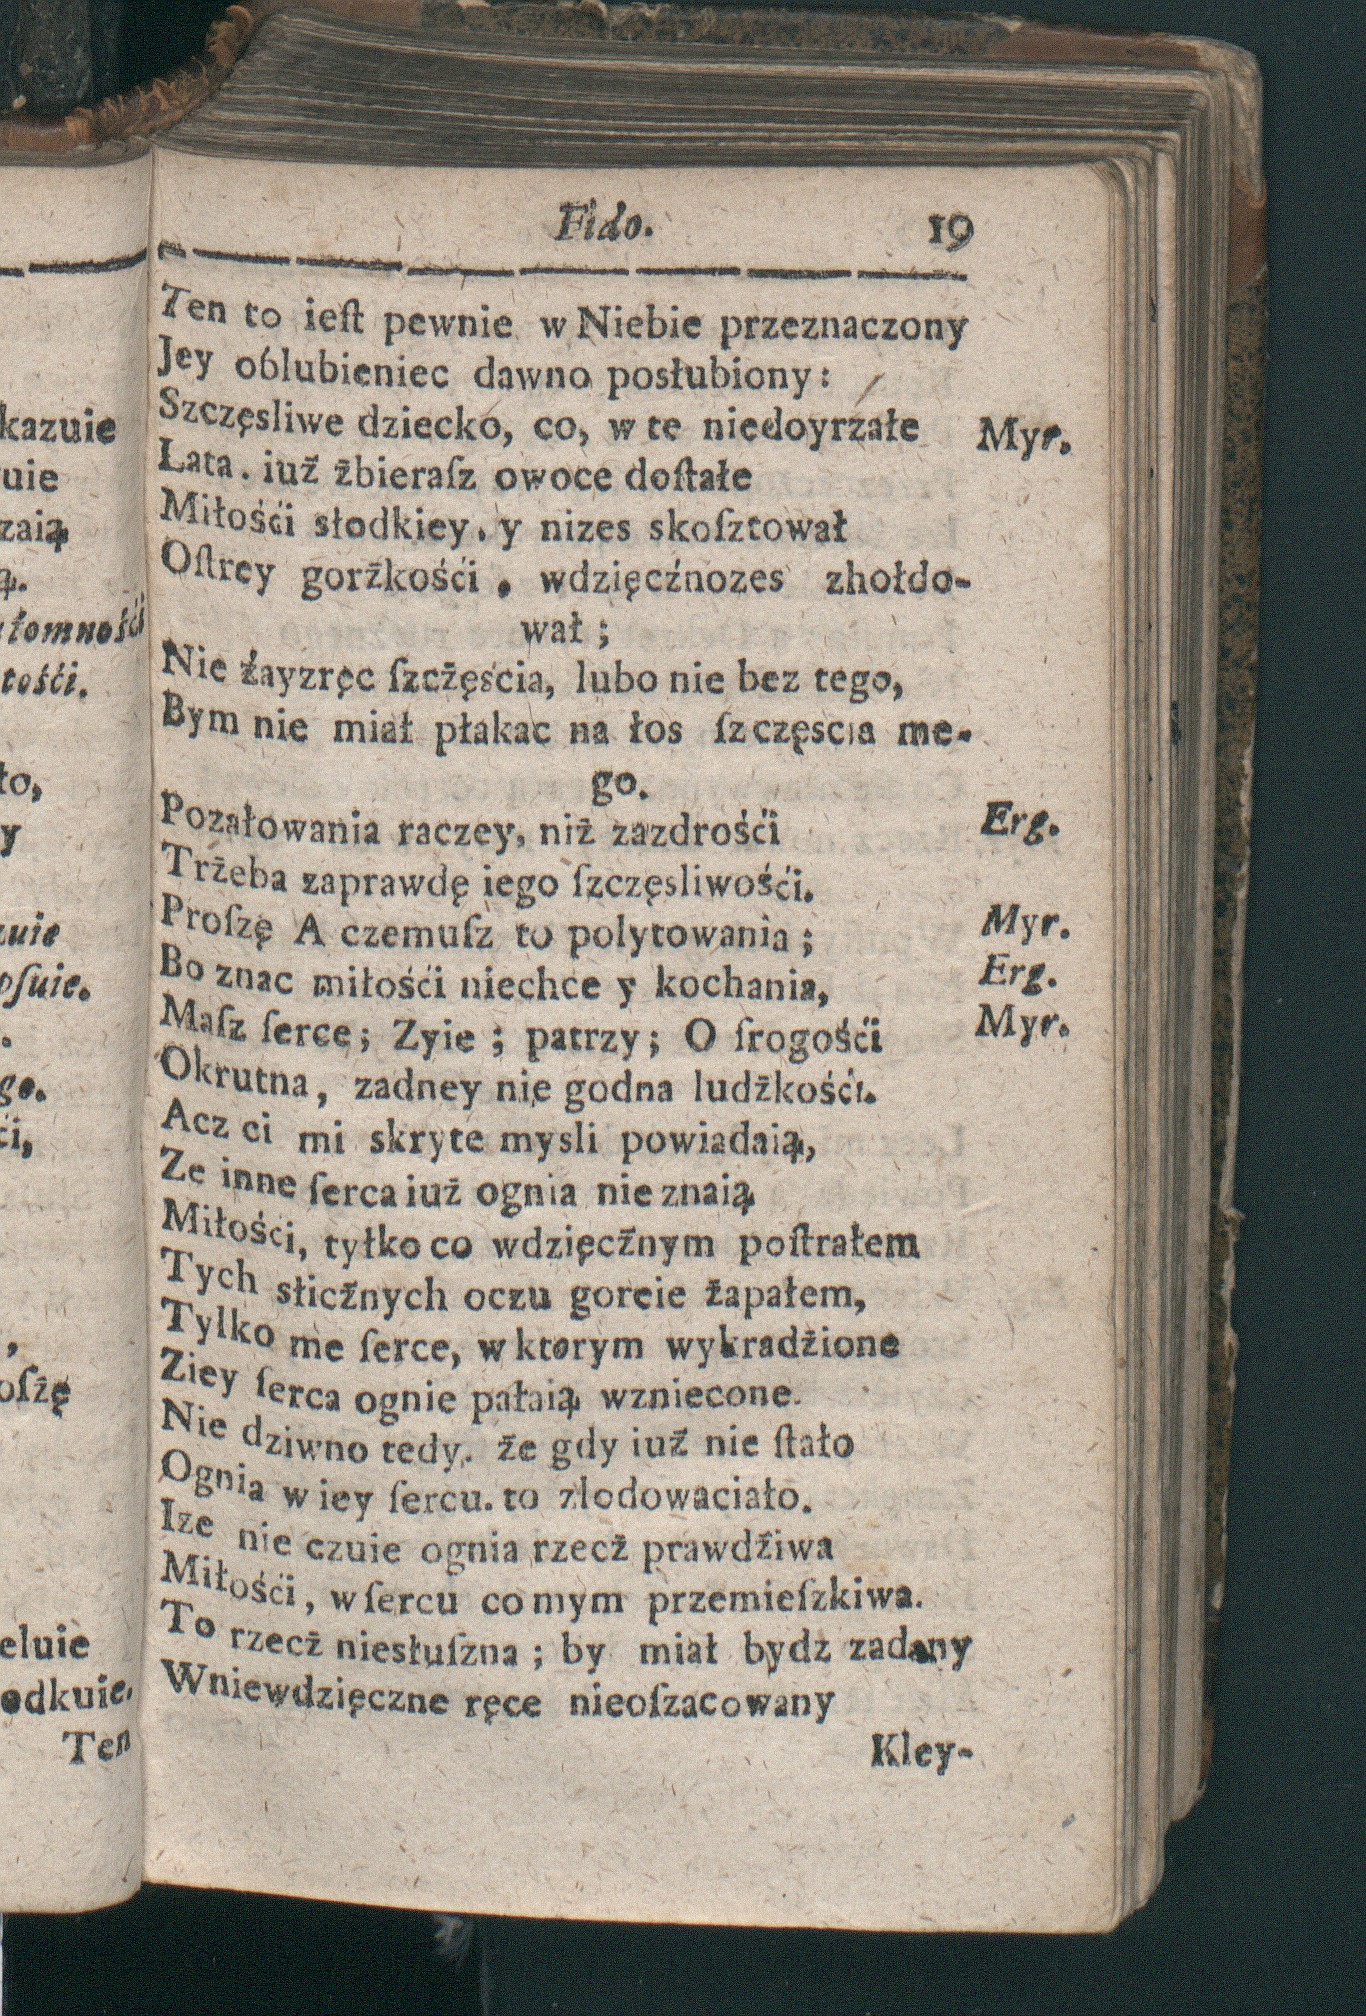 kazuie
uie
zaią
ą.
łomnośći
tośći.
ło,
y
zuie
ośuie.
go.
ći,
oſżę
eluie
odkuie.
Ten
Fido. 19
Ten to ieſt pewnie w Niebie przeznaczony
Jey oblubieniec dawno posłubiony:
Szczęsliwe dziecko, co, w te niedoyrzałe Myr.
Łata. iuż żbieraſz owoce doſtałe
Miłośći słodkiey. y nizes skoſztował
Oſtrey gorżkośći. wdzięcźnozes zhołdo-
wał;
Nie źayzręc ſzcżęścia, lubo nie bez tego,
Bym nie miał płakac na łos ſzczęscia me-
go.
Pozałowania raczey, niż zazdrośći Erg.
Trżeba zaprawdę iego ſzczęsliwośći.
Proſzę A czemuſz to polytowania; Myr.
Bo znac miłośći niechce y kochania, Erg.
Maſz ſerce; Zyie; patrzy; O ſrogośći Myr.
Okrutna, zadney nie godna ludżkośći.
Acz ci mi skryte mysli powiadaią,
Ze inne ſerca iuż ognia nie znaią
Miłości, tyłko co wdzięcżnym poſtrałem
Tych słicżnych oczu goreie żapałem,
Tylko me ſerce, w ktorym wykradżione
Ziey ſerca ognie pałaią wzniecone.
Nie dziwno tedy. że gdy iuż nie ſtało
Ognia w iey ſercu. to zlodowaciało.
Ize nie czuie ognia rzecż prawdżiwa
Miłośći, w ſercu co mym przemieſzkiwa.
To rzecż niesłuſzna; by miał bydz zadany
Wniewdzięczne ręce nieoſzacowany
Kley-